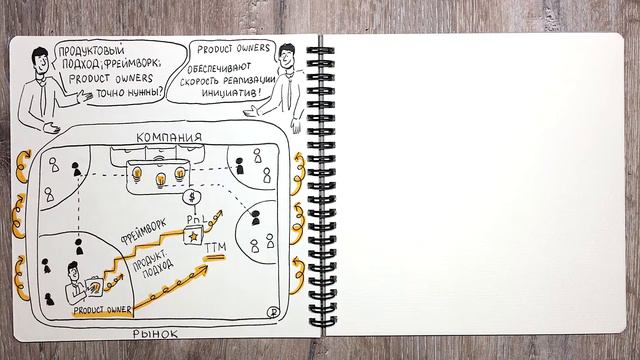 ПРОДУКТОВЫЙ
ПОДХОД, ФРЕЙМВОРК,
PRODUCT OWNERS
ТОЧНО НУЖНЫ?
PRODUCT OWNERS
ОБЕСПЕЧИВАЮТ
СКОРОСТЬ РЕАЛИЗАЦИИ
ИНИЦИАТИВ!
КОМПАНИЯ
$
PnL
ФРЕЙМВОРК
TTM
ПРОДУКТ.
ПОДХОД
PRODUCT OWNER
РЫНОК